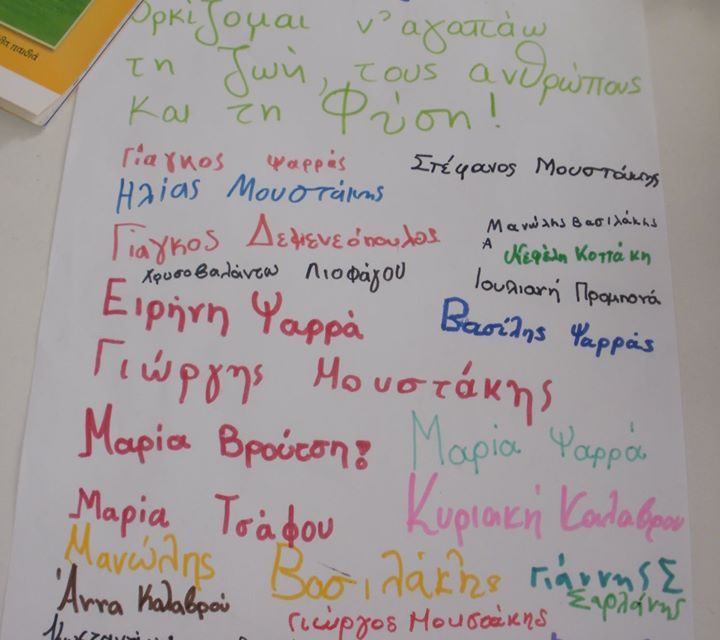 Ορκίζομαι ν' αγαπάω
τη ζωή, τους ανθρώπους
και τη Φύση!
Γιάγκος Ψαρράς
Στέφανος Μουστάκης
Ηλίας Μουστάκης
Γιάγκος Δεμενεόπουλος
Μανώλης Βασιλάκης
Α
Νεφέλη Κοττάκη
Χρυσοβαλάντω Λιοφάγου
Ιουλιανή Προμπονά
Ειρήνη Ψαρρά
Βασίλης Ψαρράς
Γιώργης Μουστάκης
Μαρία Βρούτση!
Μαρία Ψαρρά
Μαρία Τσάφου
Κυριακή Καλαβρου
Μανώλης Βασιλάκης
Γιάννης Σ
Σαρλάνης
Άννα Καλαβρού
Γιώργος Μουσάκης